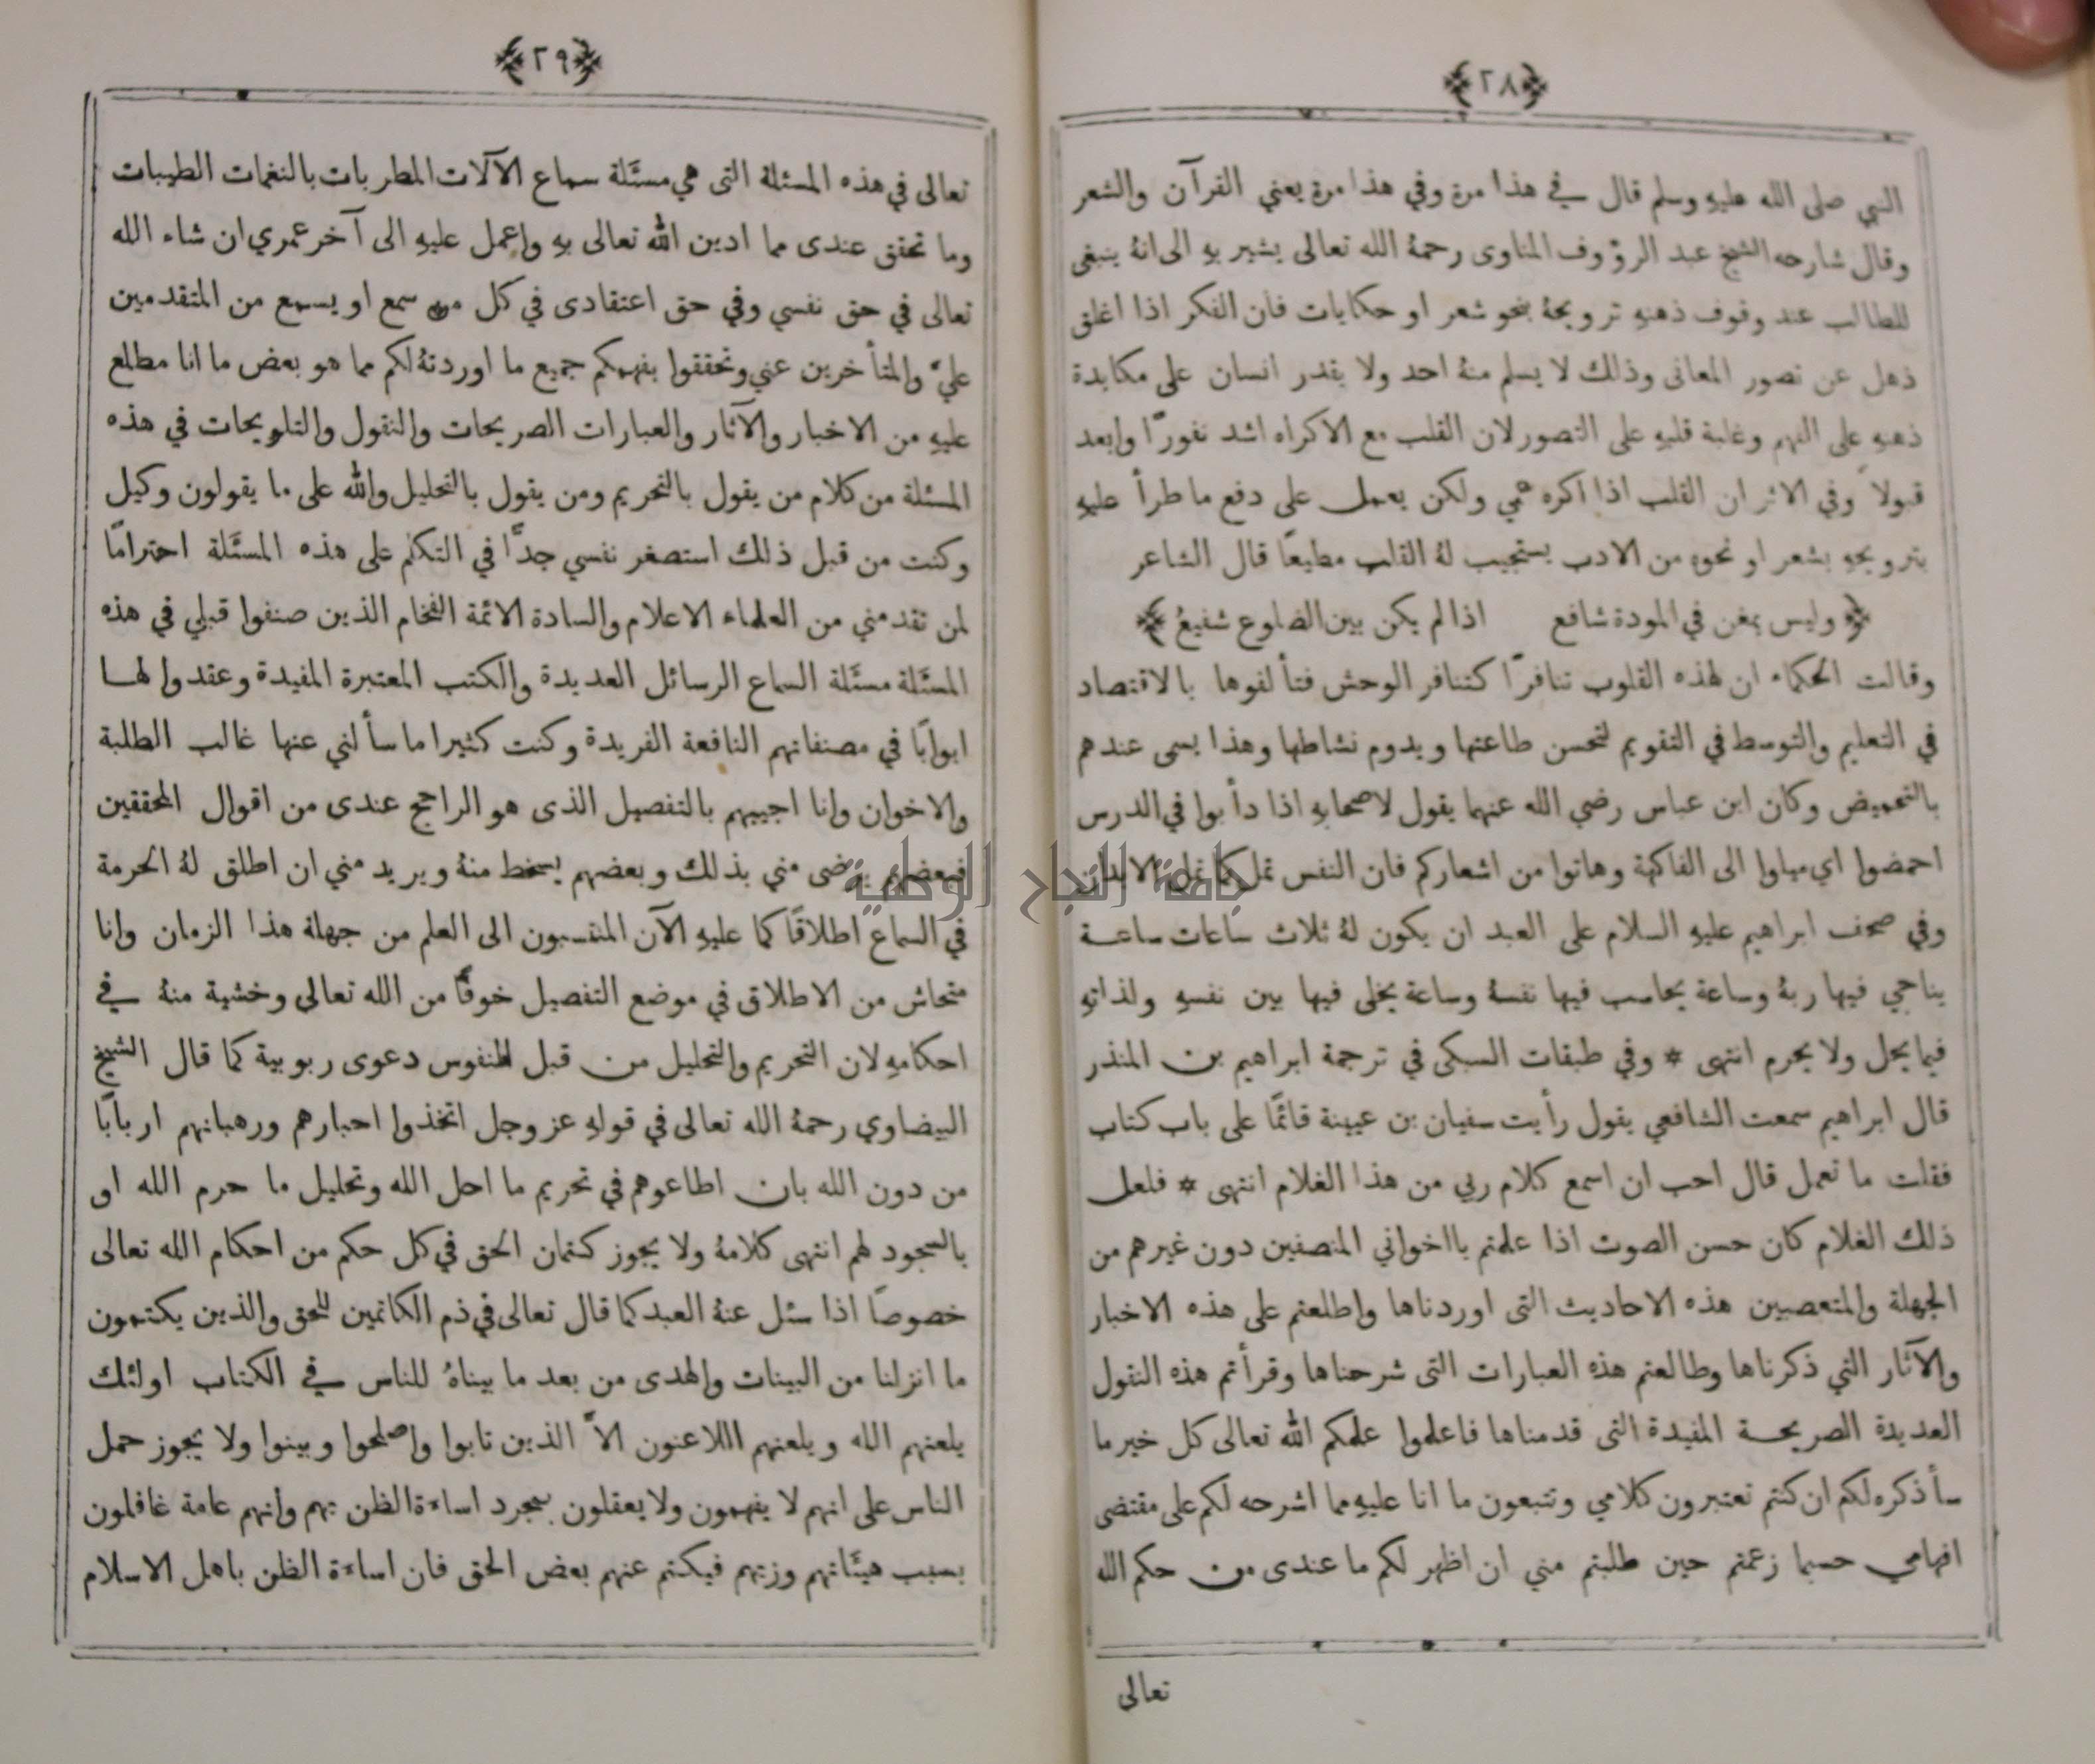 ﴿٢٨﴾
النبي صلى الله عليهِ وسلم قال في هذا مرة وفي هذا مرة يعني القرآن والشعر
وقال شارحه الشيخ عبد الرؤوف المناوى رحمهُ الله تعالى يشير بهِ الى انهُ ينبغى
للطالب عند وقوف ذهنهِ ترويحهُ بنحو شعر او حكايات فان الفكر اذا اغلق
ذهل عن تصور المعانى وذلك لا يسلم منهُ احد ولا يقدر انسان على مكابدة
ذهنهِ على الفهم وغلبة قلبهِ على التصور لان القلب مع الاكراه اشد نفورًا وابعد
قبولاً وفي الاثر ان القلب اذا اكره عمي ولكن يعمل على دفع ما طرأ عليهِ
بترويحهِ بشعر او نحوهِ من الادب يستجيب لهُ القلب مطيعًا قال الشاعر
﴿ وليس بمغن في المودة شافع اذا لم يكن بين الضلوع شفيعُ ﴾
وقالت الحكماء ان لهذه القلوب تنافرًا كتنافر الوحش فتألفوها بالاقتصاد
في التعليم والتوسط في التقويم لتحسن طاعتها ويدوم نشاطها وهذا يسمى عندهم
بالتحميض وكان ابن عباس رضي الله عنهما يقول لاصحابهِ اذا دأبوا في الدرس
احمضوا اي ميلوا الى الفاكهة وهاتوا من اشعاركم فان النفس تمل كما تمل الابدان
وفي صحف ابراهيم عليهِ السلام على العبد ان يكون لهُ ثلاث ساعات ساعة
يناجي فيها ربهُ وساعة يحاسب فيها نفسهُ وساعة يخلى فيها بين نفسهِ ولذاتهِ
فيما يحل ولا يحرم انتهى * وفي طبقات السبكى في ترجمة ابراهيم بن المنذر
قال ابراهيم سمعت الشافعي يقول رأيت سفيان بن عيينة قائمًا على باب كتاب
فقلت ما تعمل قال احب ان اسمع كلام ربي من هذا الغلام انتهى * فلعل
ذلك الغلام كان حسن الصوت اذا علمتم يا اخواني المنصفين دون غيرهم من
الجهلة والمتعصبين هذه الاحاديث التى اوردناها واطلعتم على هذه الاخبار
والآثار التي ذكرناها وطالعتم هذه العبارات التى شرحناها وقرأتم هذه النقول
العديدة الصريحة المفيدة التى قدمناها فاعلموا علمكم الله تعالى كل خير ما
سأذكره لكم ان كنتم تعتبرون كلامي وتتبعون ما انا عليهِ مما اشرحه لكم على مقتضى
افهامي حسبما زعمتم حين طلبتم مني ان اظهر لكم ما عندى من حكم الله
تعالى
﴿٢٩﴾
تعالى في هذه المسئلة التى هي مسئَلة سماع الآلات المطربات بالنغمات الطيبات
وما تحقق عندى مما ادين الله تعالى بهِ واعمل عليهِ الى آخر عمري ان شاء الله
تعالى في حق نفسي وفي حق اعتقادى في كل من سمع او يسمع من المتقدمين
عليّ والمتأخرين عني وتحققوا بفهمكم جميع ما اوردتهُ لكم مما هو بعض ما انا مطلع
عليهِ من الاخبار والآثار والعبارات الصريحات والنقول والتلويحات في هذه
المسئلة من كلام من يقول بالتحريم ومن يقول بالتحليل والله على ما يقولون وكيل
وكنت من قبل ذلك استصغر نفسي جدًّا في التكلم على هذه المسئَلة احترامًا
لمن تقدمني من العلماء الاعلام والسادة الائمة الفخام الذين صنفوا قبلي في هذه
المسئَلة مسئَلة السماع الرسائل العديدة والكتب المعتبرة المفيدة وعقدوا لها
ابوابًا في مصنفاتهم النافعة الفريدة وكنت كثيرا ما سألني عنها غالب الطلبة
والاخوان وانا اجيبهم بالتفصيل الذى هو الراجح عندى من اقوال المحققين
فبعضهم يرضى مني بذلك وبعضهم يسخط منهُ ويريد مني ان اطلق لهُ الحرمة
في السماع اطلاقًا كما عليهِ الآن المنتسبون الى العلم من جهلة هذا الزمان وانا
متحاش من الاطلاق في موضع التفصيل خوفًا من الله تعالى وخشية منهُ في
احكامهِ لان التحريم والتحليل من قبل النفوس دعوى ربوبية كما قال الشيخ
البيضاوي رحمهُ الله تعالى في قولهِ عز وجل اتخذوا احبارهم ورهبانهم اربابًا
من دون الله بان اطاعوهم في تحريم ما احل الله وتحليل ما حرم الله او
بالسجود لهم انتهى كلامهُ ولا يجوز كتمان الحق في كل حكم من احكام الله تعالى
خصوصًا اذا سئل عنهُ العبد كما قال تعالى في ذم الكاتمين للحق والذين يكتمون
ما انزلنا من البينات والهدى من بعد ما بيناهُ للناس في الكتاب اولئك
يلعنهم الله ويلعنهم اللاعنون الاَّ الذين تابوا واصلحوا وبينوا ولا يجوز حمل
الناس على انهم لا يفهمون ولا يعقلون بمجرد اساءة الظن بهم وانهم عامة غافلون
بسبب هيئَاتهم وزيهم فيكتم عنهم بعض الحق فان اساءة الظن باهل الاسلام
جامعة النجاح الوطنية